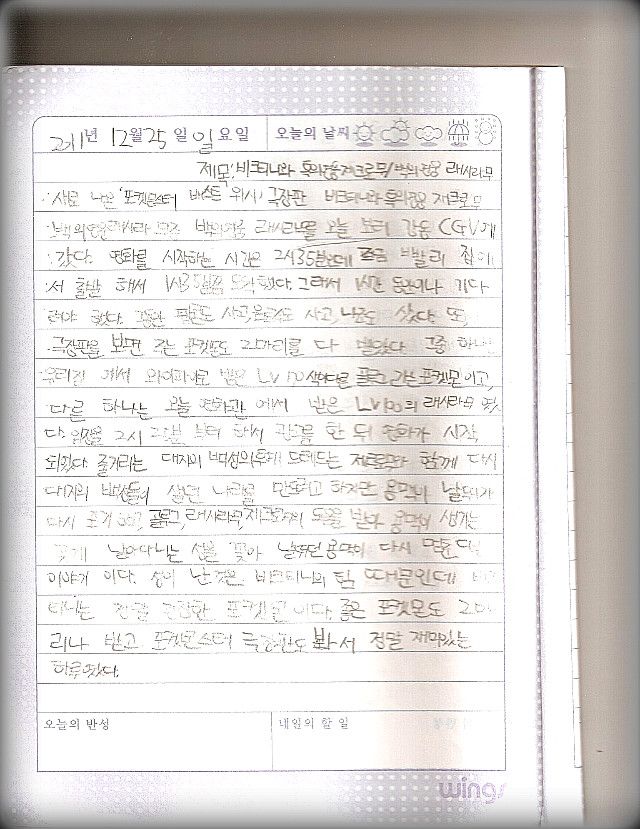 2011년 12월 25일 일요일 오늘의 날씨
제목: 비크티니와 흑의영웅 제크로무/백의영웅 레시라무
새로 나온 '포켓몬스터 베스트 위시' 극장판 비크티니와 흑의영웅 제크로무
백의영웅 레시라무를 오늘 보러 강동 CGV에
갔다. 영화를 시작하는 시간은 2시35분인데 조금 빨리 집에
서 출발 해서 1시 도착했다. 그래서 1시간 동안이나 기다
려야 했다. 팝콘도 사고, 음료도 사고, 샀다. 또,
극장판을 보면 주는 포켓몬도 2마리를 다 받았다. 그중 하나는
우리집 에서 와이파이로 받은 Lv 포켓몬 이고,
다른 하나는 오늘 영화관 에서 받은 Lv100의 레시라무 였
다. 입장을 2시 부터 해서 광고를 한 뒤 영화가 시작
되었다. 줄거리는 대지의 백성의 후예 드레드는 제크로무와 함께 다시
대지의 백성들이 살던 나라를 만드려고 하지만 용맥이 날뛰다가
다시 지우, 레시라무, 제크로무의 도움을 받아 용맥이 생기는
곳에 날아다니는 성을 꽂아 날뛰던 용맥이 다시 멈춘다는
이야기 이다. 성이 난 것은 비크티니의 힘 때문인데 비크
티니는 정말 굉장한 포켓몬 이다. 좋은 포켓몬도 2마
리나 받고 포켓몬스터 극장판도 봐서 정말 재미있는
하루였다.
오늘의 반성 내일의 할 일
wings